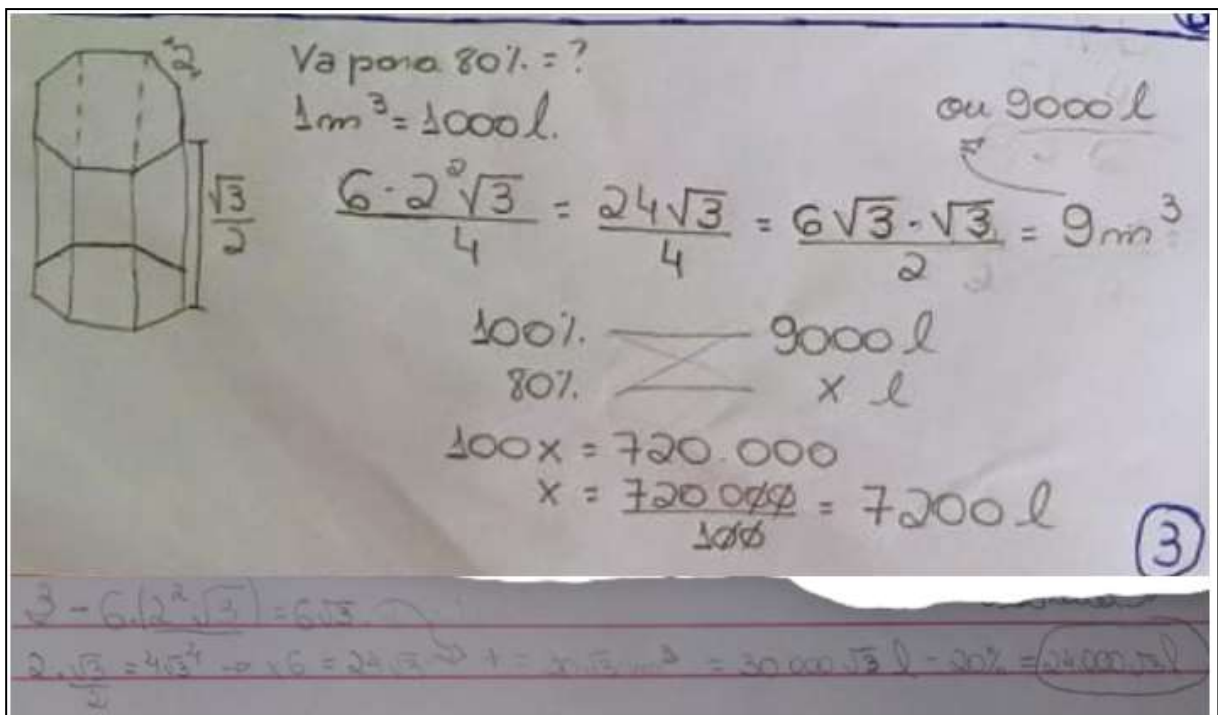 "2"
Va para 80% = ?
1m³ = 1000l.
ou 9000 l
√3/2
6·2²√3/4 = 24√3/4 = 6√3·√3/2 = 9m³
100% 9000 l
80% x l
100x = 720.000
x = 720000/100 = 7200 l
3
3 - 6.(2²√3) = 6√3
2.√3/2 = 4√3 x6 = 24√3 + = = 30000√3 l - 20% = 24.000√3 l